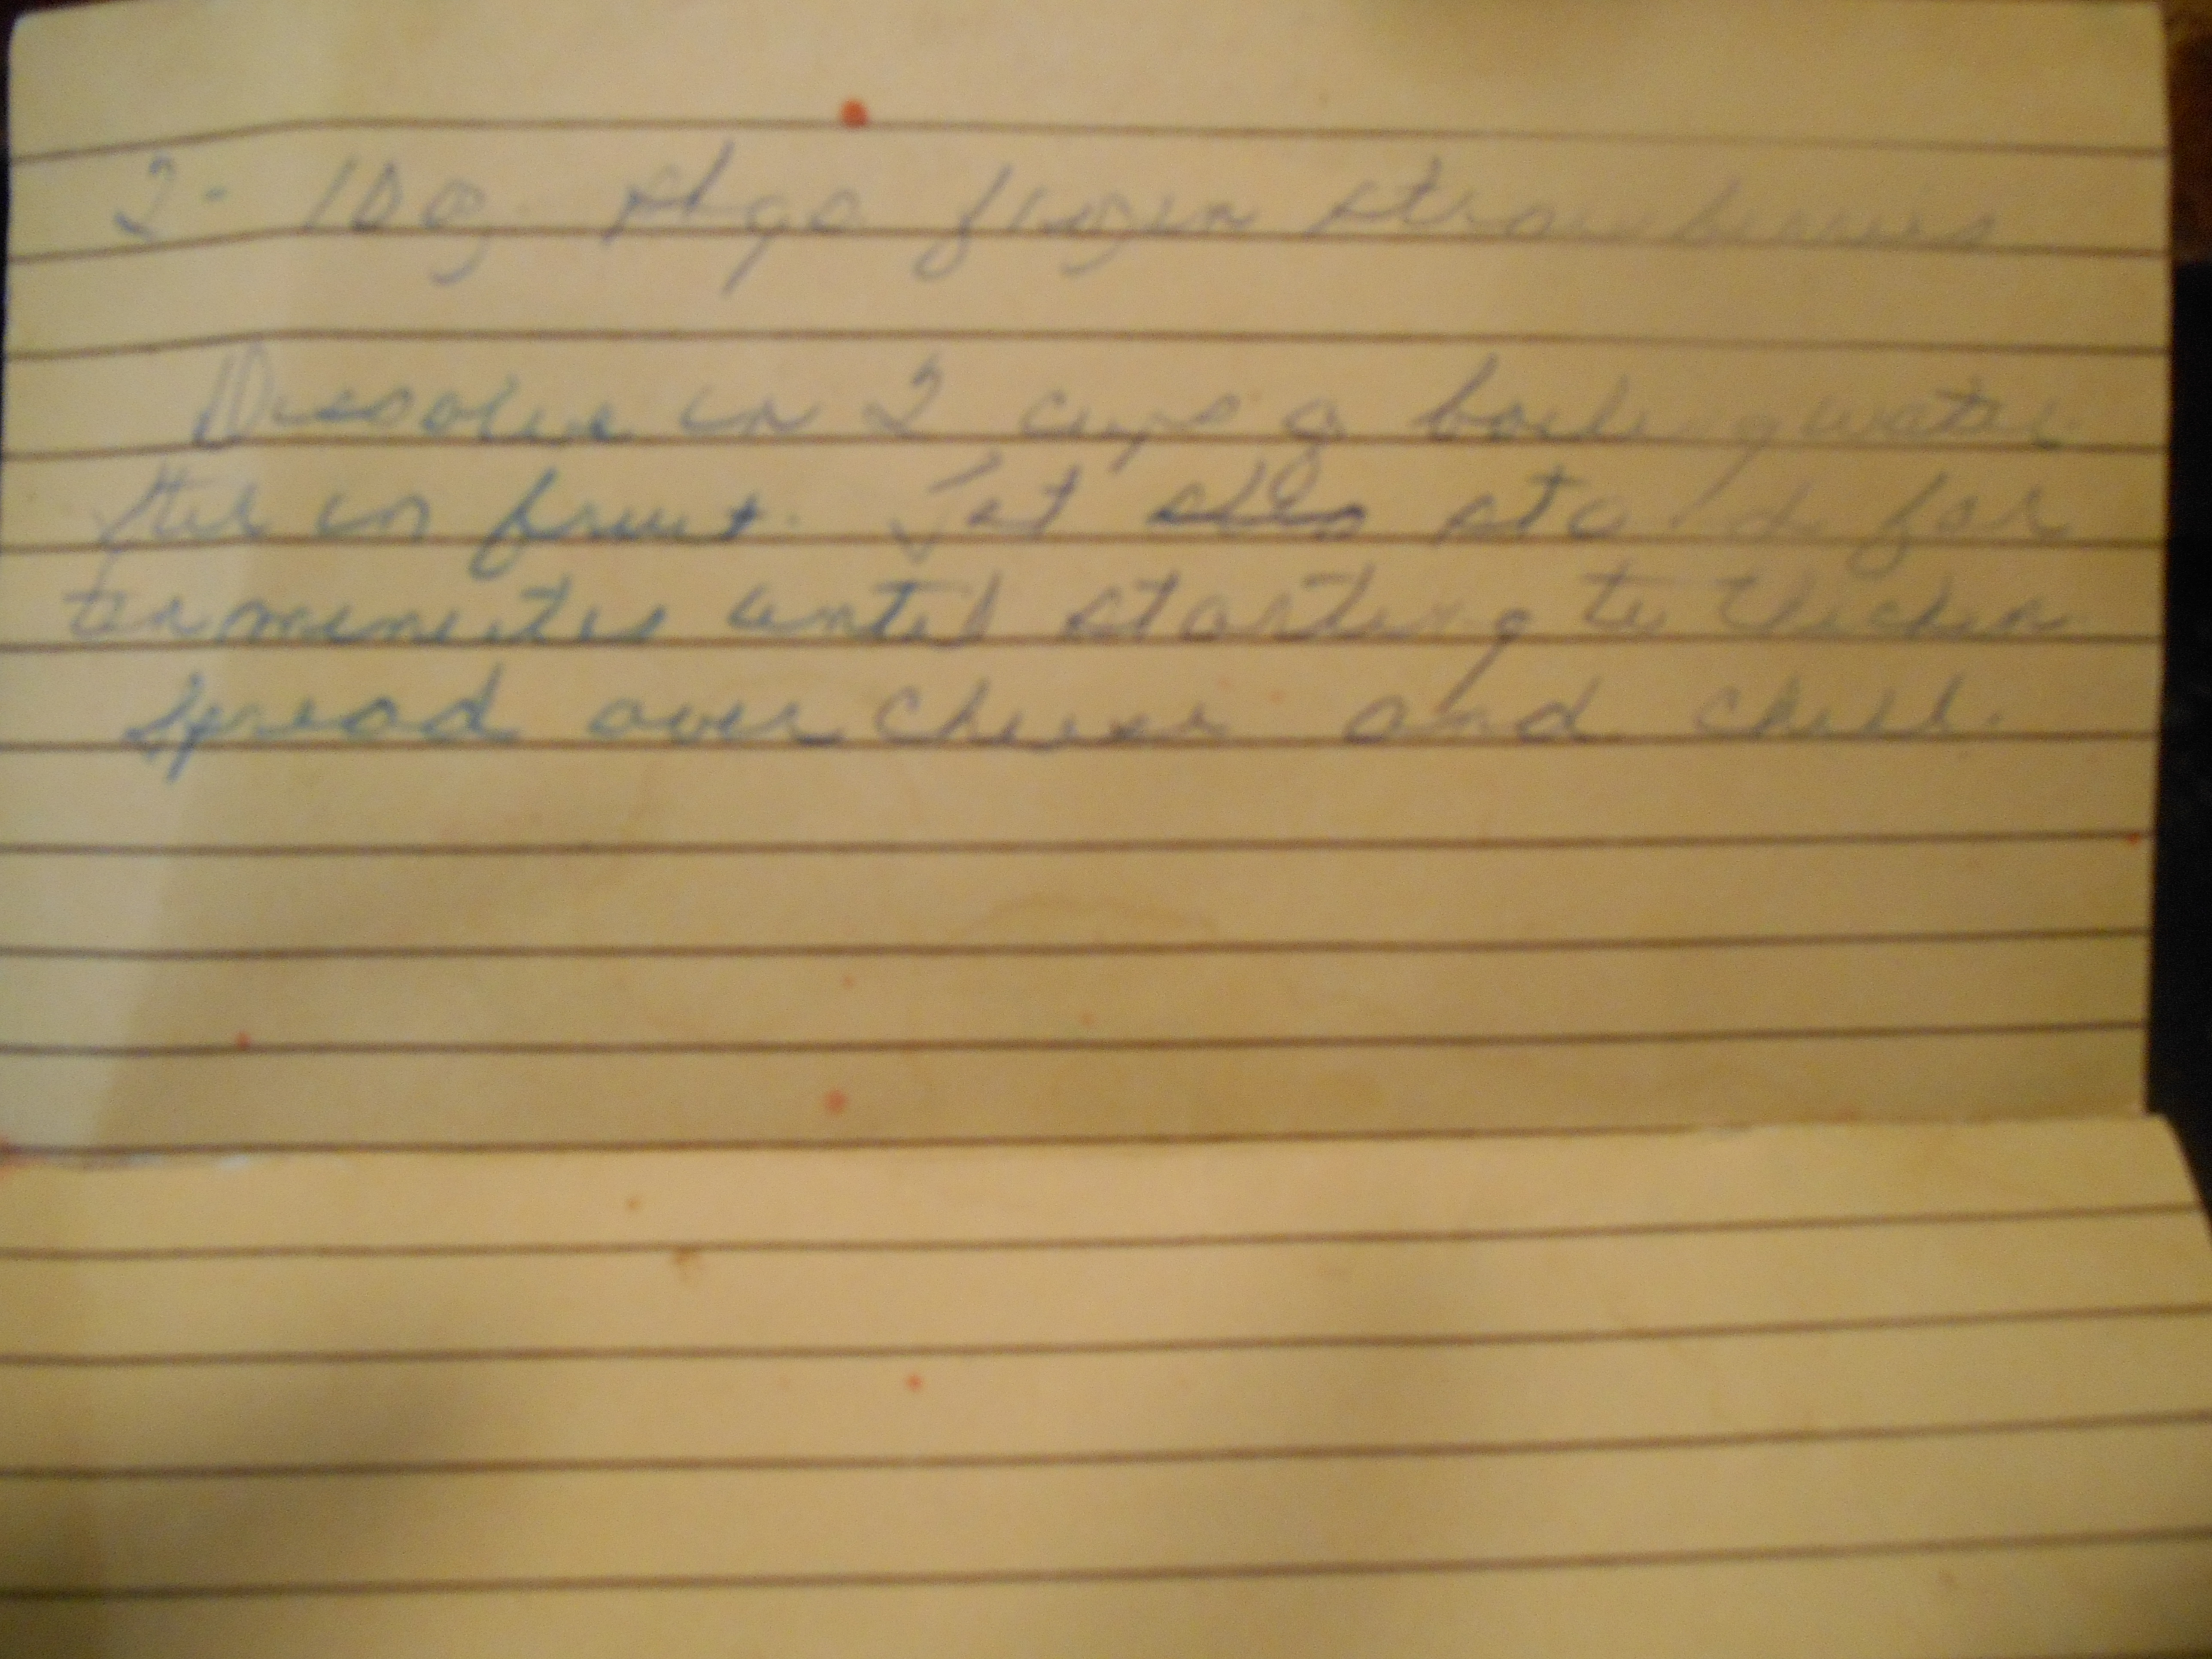 2 - 10 oz. pkgs frozen strawberries
Dissolve in 2 cups of boiling water.
Stir in fruit. Let stand for
ten minutes until starting to thicken
Spread over cheese and chill.